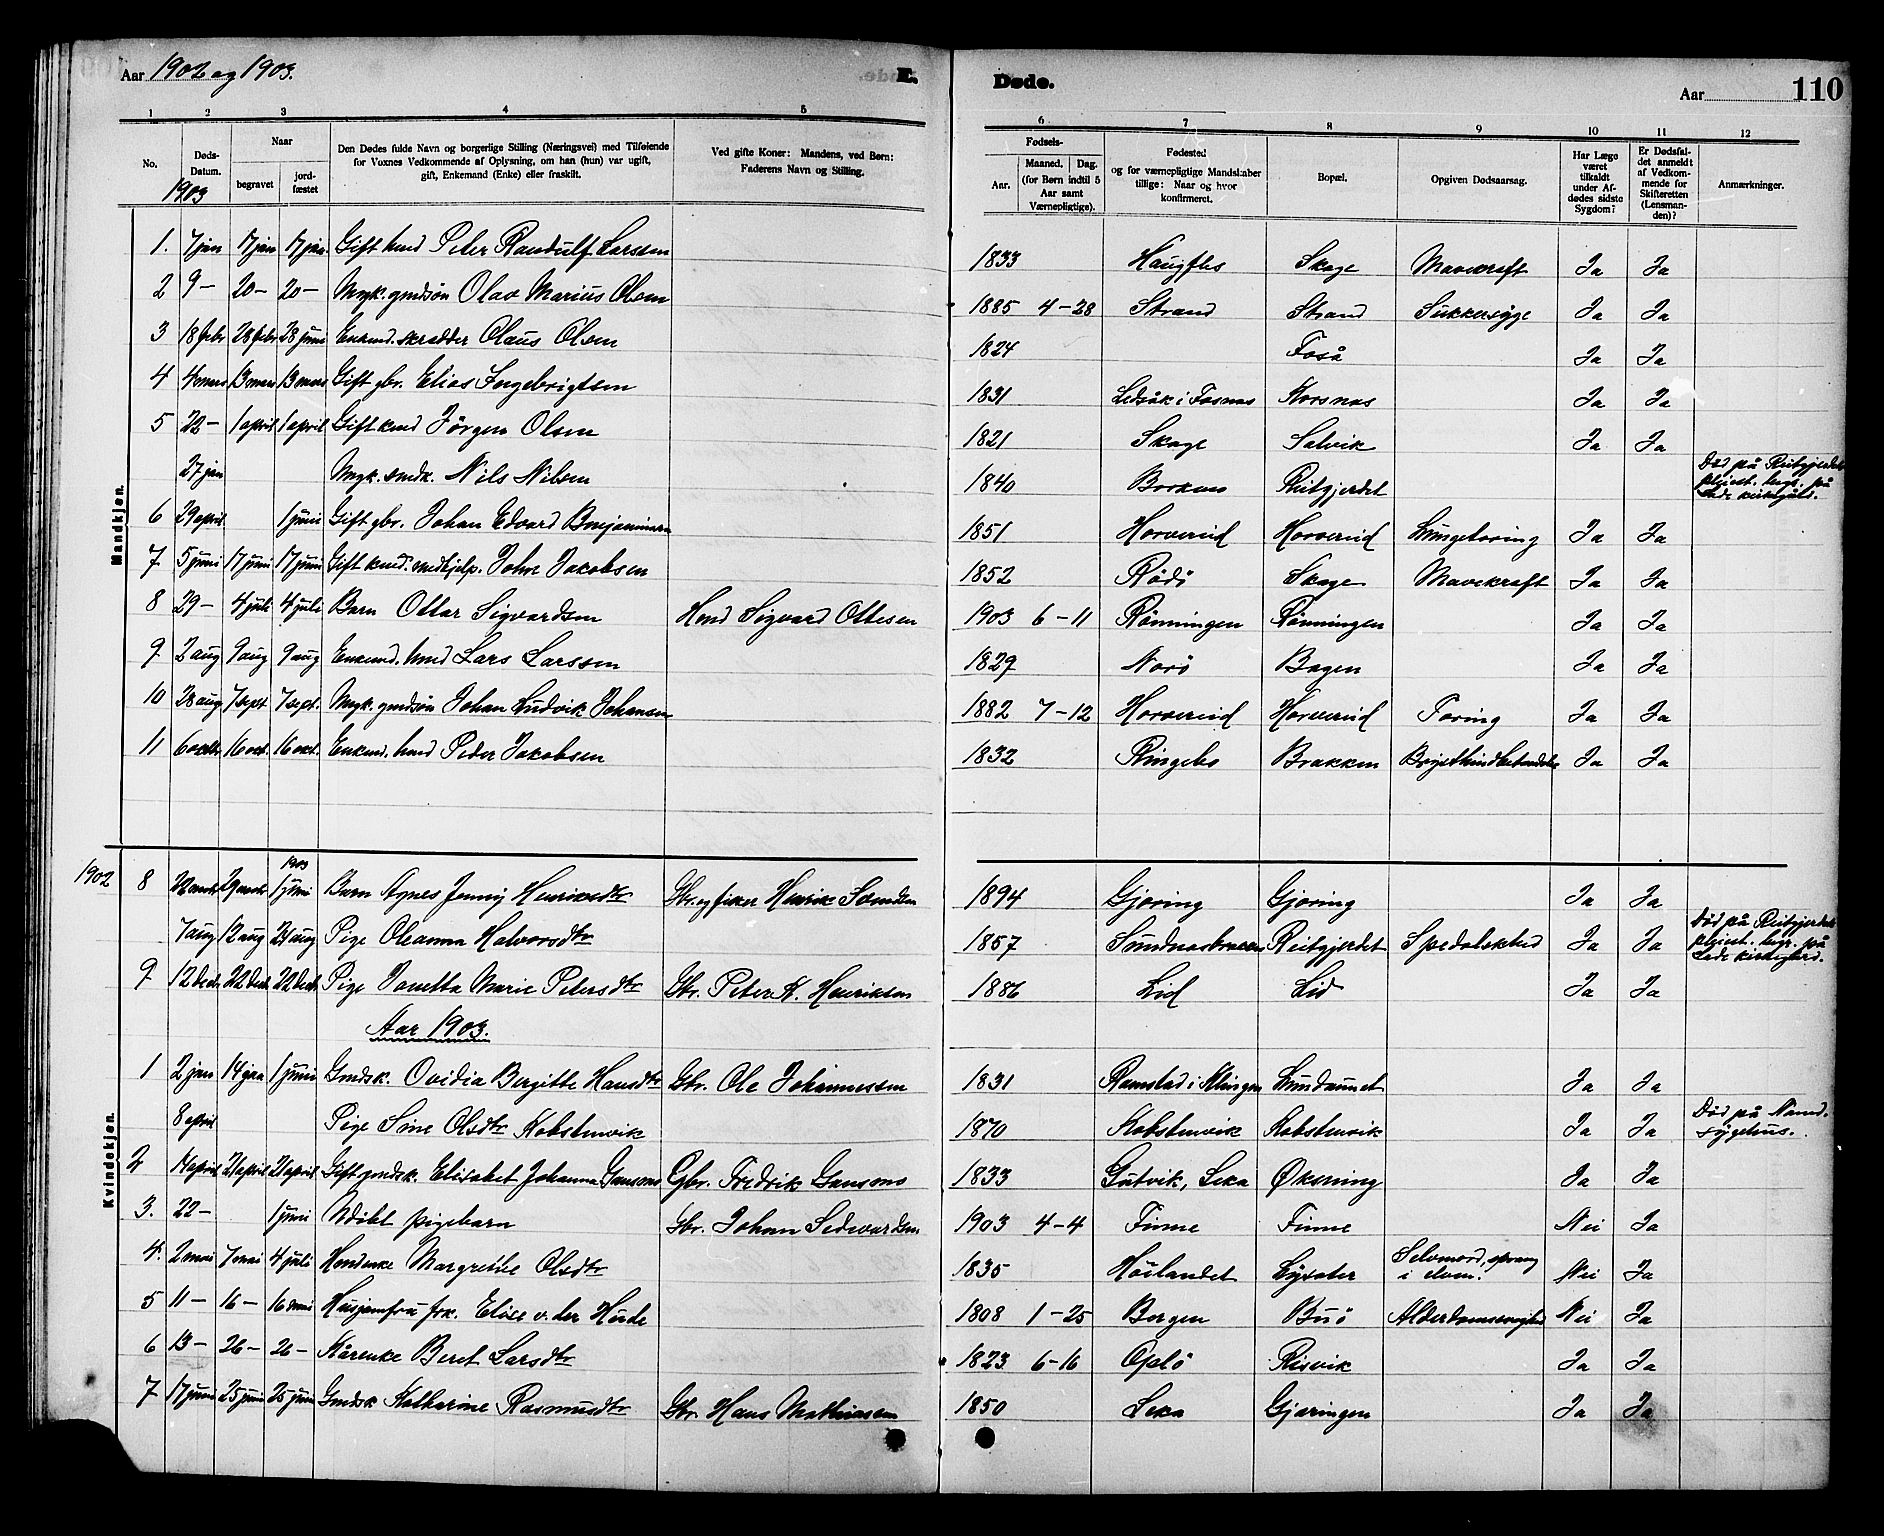 Aar 1902 og 1903.
E.
Døde.
Aar
110
1 2 3 4 5 6 7 8 9 10 11 12
No.
Døds-Datum.
Naar
begravet
jordfæstet
Den Dødes fulde Navn og borgerlige Stilling (Næringsvei) med Tilføiende for Voxnes Vedkommende af Oplysning, om han (hun) var ugift, gift, Enkemand (Enke) eller fraskilt.
Ved gifte Koner: Mandens, ved Børn: Faderens Navn og Stilling.
Fødsels-
Aar.
Maaned. Dag.
(for Børn indtil 5 Aar samt Værnepligtige).
Fødested
og for værnepligtige Mandskaber tillige: Naar og hvor konfirmeret.
Bopæl.
Opgiven Dødsaarsag.
Har Læge været tilkaldt under Afdødes sidste Sygdom?
Er Dødsfaldet anmeldt af Vedkommende for Skifteretten (Lensmanden)?
Anmærkninger.
1903
Mandkjøn.
1. 7 jan 17 jan 17 jan. Gift hmd Peter Randulf Larssen 1833 Haugfles Skage Mavekraft Ja Ja
2 9 – 20 – 20 – Ungk. gmdsøn Olav Marius Olsen 1885 4 – 28 Strand Strand Sukkersyge Ja Ja
3 18 febr 28 febr 28 juni Enkmd. skrædder Olaus Olsen 1824 Foså Ja Ja
4 4 mars 13 mars 13 mars Gift gbr. Elias Ingebrigtsen 1831 i Fosnes Korsnes Ja Ja
5 22 – 1 april 1 april Gift kmd Jörgen Olsen 1821 Skage Salvik Ja Ja
27 jan Ungk. Nils Nilsen 1840 Reitgjerdet Död på Reitgjerdet plejest. begr. på Lade kirkegård.
6 29 april 1 juni Gift gbr. Johan Edvard Benjaminsen 1851 Horvereid Horvereid Lungetæring Ja Ja
7 5 juni 17 juni 17 juni Gift kmd. medhjelp. John Jakobsen 1852 Rödö Skage Mavekraft Ja Ja
8 29 – 4 juli 4 juli Barn Ottar Sigvardsen Hmd Sigvard Ottesen 1903 6 – 11 Rönningen Rönningen Ja Ja
9 2 aug 9 aug 9 aug Enkmd. hmd Lars Larssen 1829 Narö Bogen Ja Ja
10 28 aug 7 sept 7 sept. Ungk. gmdsön Johan Ludvik Johansen 1882 7 – 12 Horvereid Horvereid Tæring Ja Ja
11 6 oktr 16 oct. 16 okt. Enkmd. hmd Peder Jakobsen 1832 Ringebo Brakken Ja Ja
Kvindekjøn.
1902 8 1903 1 juni Barn Agnes Jenny Henriksdtr Gbr. og fisker Henrik 1894 Gjæring Gjæring Ja Ja
7 aug 12 aug 24 aug Pige Oleanna Halvorsdtr 1857 Reitgjerdet Spedalskhed Ja Ja Död på Reitgjerdet plejest. begr. på Lade kirkegård.
9 12 Dec. 22 Dec. 22 Dec. Pige Marie Petersdtr Gbr. Peter K. Henriksen 1886 Lid Lid Ja Ja
Aar 1903.
1 2 jan 14 jan 1 juni Gmdsk. Ovidia Bergitte Hansdtr Gbr. Ole Johannessen 1831 Ramstad i Klingen Lundaunet Ja Ja
8 april Pige Sine Olsdtr Kobstenvik 1870 Kobstenvik Kobstenvik Ja Ja Död på Namd. sygehus.
2 14 april 21 april 21 april Gift gmdsk. Elisabet Johanna Gansmo Gbr. Fredrik Gansmo 1833 Gutvik, Leka Øksning Ja Ja
3. 22 – 1 juni Udöbt pigebarn Gbr. Johan Sedevardsen 1903 4 – 4 Finne Finne Nei Ja
4. 2 mai 7 mai 4 juli Hmdenke Margrethe Olsdtr 1835 Höilandet Selvmord, sprang i elven. Nei Ja
5 11 – 16 – 16 mai Husjomfru frk. Elise v. der Herde 1808 1 – 25 Bergen Buö Alderdomssvaghed Nei Ja
6 13 – 26 – 26 – Kårenke Beret Larsdtr 1823 6 – 16 Oplö Risvik Ja Ja
7 17 juni 25 juni 25 juni Gmdsk Katharine Rasmusdtr Gbr. Hans Mathiassen 1850 Leka Gjæringen Ja Ja